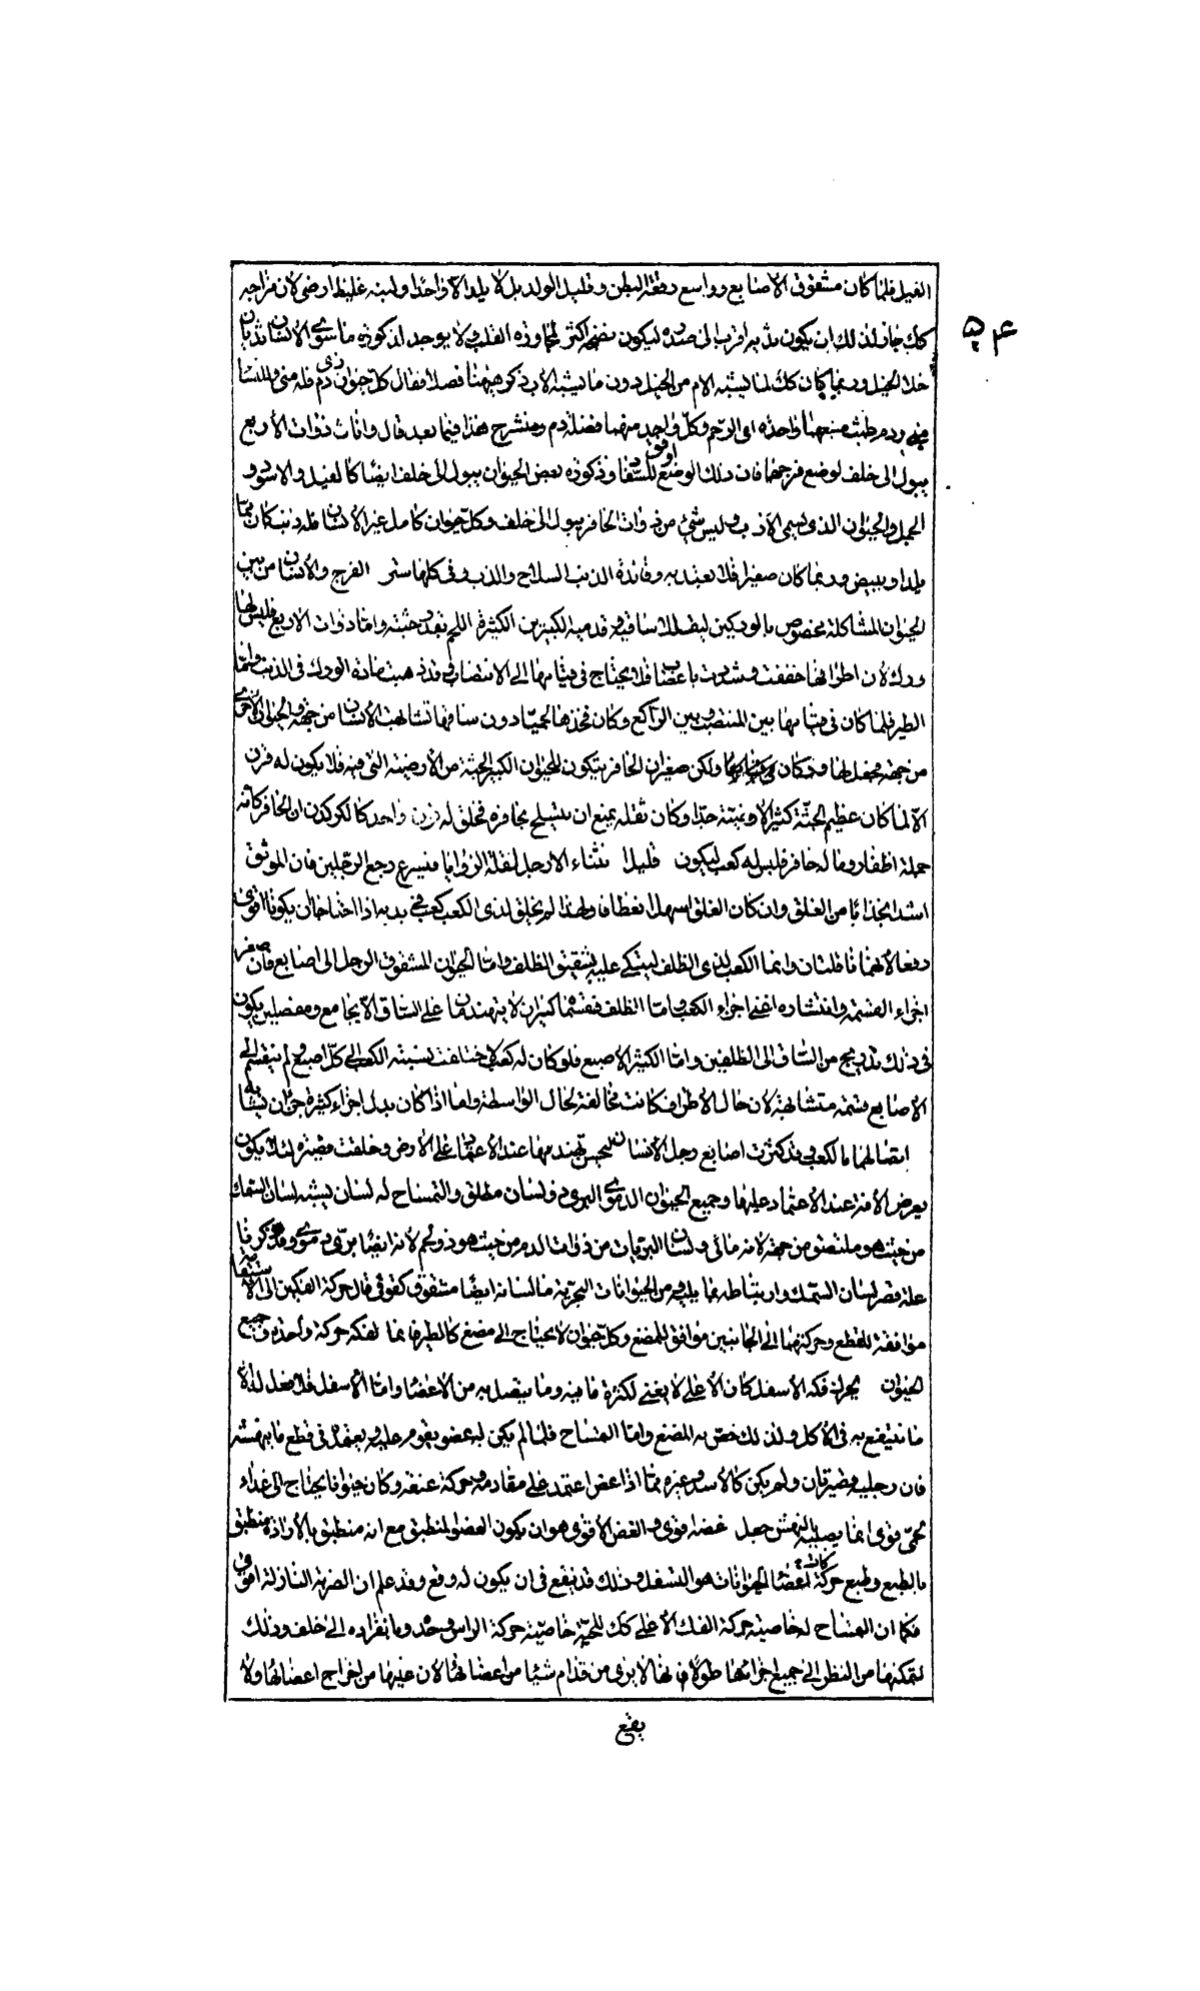 الفيل فلما كان مشقوق الاصابع وواسع رقعة البطن وقليل الولد بل لا يلد الا واحدا ولبنه غليظ ارضى لان مزاجه
۵۴
كك جاز لذلك ان يكون ثديه اقرب الى صدره ليكون نضجه اكثر لمجاورة القلب ولا يوجد لذكورة ما سوى الانسان ثديان
خلا الخيل وربما كان كك لما يشبه الام من الخيل دون ما يشبه الاب ذكر هيهنا فصلا فقال كل حيوان ذى دم فله منى وللنساء
منى ودم طمث منبعهما واحدة اى الرحم وكل واحد منهما فضلة دم وسنشرح هذا فيما بعد قال واناث ذوات الاربع
يبول الى خلف لوضع فرجها فان ذلك الوضع اوفق للسفاد وذكورة بعض الحيوان يبول الى خلف ايضا كالفيل والاسود و
الجمل والحيوان الذى يسمى الازب وليس شئ من ذوات الحافر يبول الى خلف وكل حيوان كامل غير الانسان فله ذنب كان مما
يلد او يبيض وربما كان صغيرا فلا يعتد به وفائدة الذنب السلاح والذب وفى كلها ستر الفرج والانسان من بين
الحيوان المشاكلة مخصوص بالوركين ليفضلا ساقيه وقدميه الكبيرين الكثيرة اللحم بقدر جثته واما ذوات الاربع فليس لها
ورك لان اطرافها خففت وشددت باعصاب فلا يحتاج فى قيامها الى الانتصاب وقد ذهبت مادة الورك فى الذنب واما
الطير فلما كان فى قيامها بين المنتصب وبين الراكع وكان فخذها لحميا دون ساقها تشابهت الانسان من جهة والحيوان الاخرى
من جهة فجعل لها ورك كان ولكن صغير ان الحافر يتكون للحيوان الكبير الجثة من الارضية التى فيه فلا يكون له قرن
الا لما كان عظيم الجثة كثير الارضية جدا وكان ثقله يمنع ان يتسلح بحافره فخلق له قرن واحد كالكركدن ان الحافر كانه
جملة اظفار وماله حافر فليس له كعب ليكون قليل انثناء الارجل لقلة الزوايا فيسرع رجع الرجلين فان الموثق
اشد انجذابا من الغلق وان كان الغلق اسهل انعطافا ولهذا لم يخلق لذى الكعب كعب فى يديه اذا احتاجا ان يكونا اقوى
دفعا لانهما ناقلتان وانما الكعب لذى الظلف ليتكى عليه بشقيق الظلف واما الحيوان المشقوق الرجل الى اصابع فان صغر
اجزاء القسمة وانتشاره اغنى اجزاء الكعب واما الظلف فقسماه كبيران لا يتهندمان على الساق الا بجامع ومفصلين يكون
فى ذلك تدريج من الساق الى الظلفين واما الكثير الاصبع فلو كان له كعب لاختلفت نسبته الكعب الى كل اصبع ولم ينقسم الى
الاصابع قسمة متشابهة لان حال الاطراف كانت مخالفة لحال الواسطة واما اذا كان بدل اجزاء كثيرة جاز ان يتشابه
اتصالهما بالكعب وقد كثرت اصابع رجل الانسان ليحسن تهندمها عند الاعتماد على الارض وخلقت قصيرة لئلا يكون
يعرض الافة عند الاعتماد عليها وجميع الحيوان الدموى البرى ذو لسان مطلق والتمساح له لسان يشبه لسان السمك
من حيث هو ملتصق من جهة لانه مائى ولسان البريات من ذوات الدم من حيث هو ذو لحم لانه ايضا برى دموى وقد ذكرنا
علة قصر لسان السمك وارتباطه بما يليه ومن الحيوانات البحرية ما لسانه ايضا مشقوق كفوقى قال حركة الفكين الى الاستقامة
موافقة للقطع وحركتهما الى الجانبين موافق للمضغ وكل حيوان لا يحتاج الى مضغ كالطير فانما لفكه حركة واحدة وجميع
الحيوان يحرك فكه الاسفل كان الاعلى لا يغنى لكثرة ما فيه وما يتصل به من الاعضاء واما الاسفل فلا فضل له الا
ما ينتفع به فى الاكل ولذلك خص به المضغ واما التمساح فلما لم يكن له عضو يقوم عليه ويعتمد فى قطع ما ينهشه
فان رجليه قصيرتان ولم يكن كالاسد وغيره مما اذا عض اعتمد على مقاديمه وحركة عنقه وكان حيوانا يحتاج الى غذاء
لحمى قوى انما يصلبه بالنهش جعل عضه اقوى والعض الاقوى هو ان يكون العضو المنطبق مع انه منطبق بالارادة منطبق
بالطبع وطبع حركات اعضاء الحيوانات هو التسفل وذلك قد ينفع فى ان يكون له وقع وقد علم ان الضربة النازلة اقوى
فكما ان التمساح له خاصية حركة الفك الاعلى كك للحية خاصية حركة الراس وحده وبانفراده الى خلف وذلك
لتمكنها من النظر الى جميع اجزائها طولا فانها لا يرى من قدام شيئا من اعضائها لان عنيها من اخراج اعضائها ولا
يقع